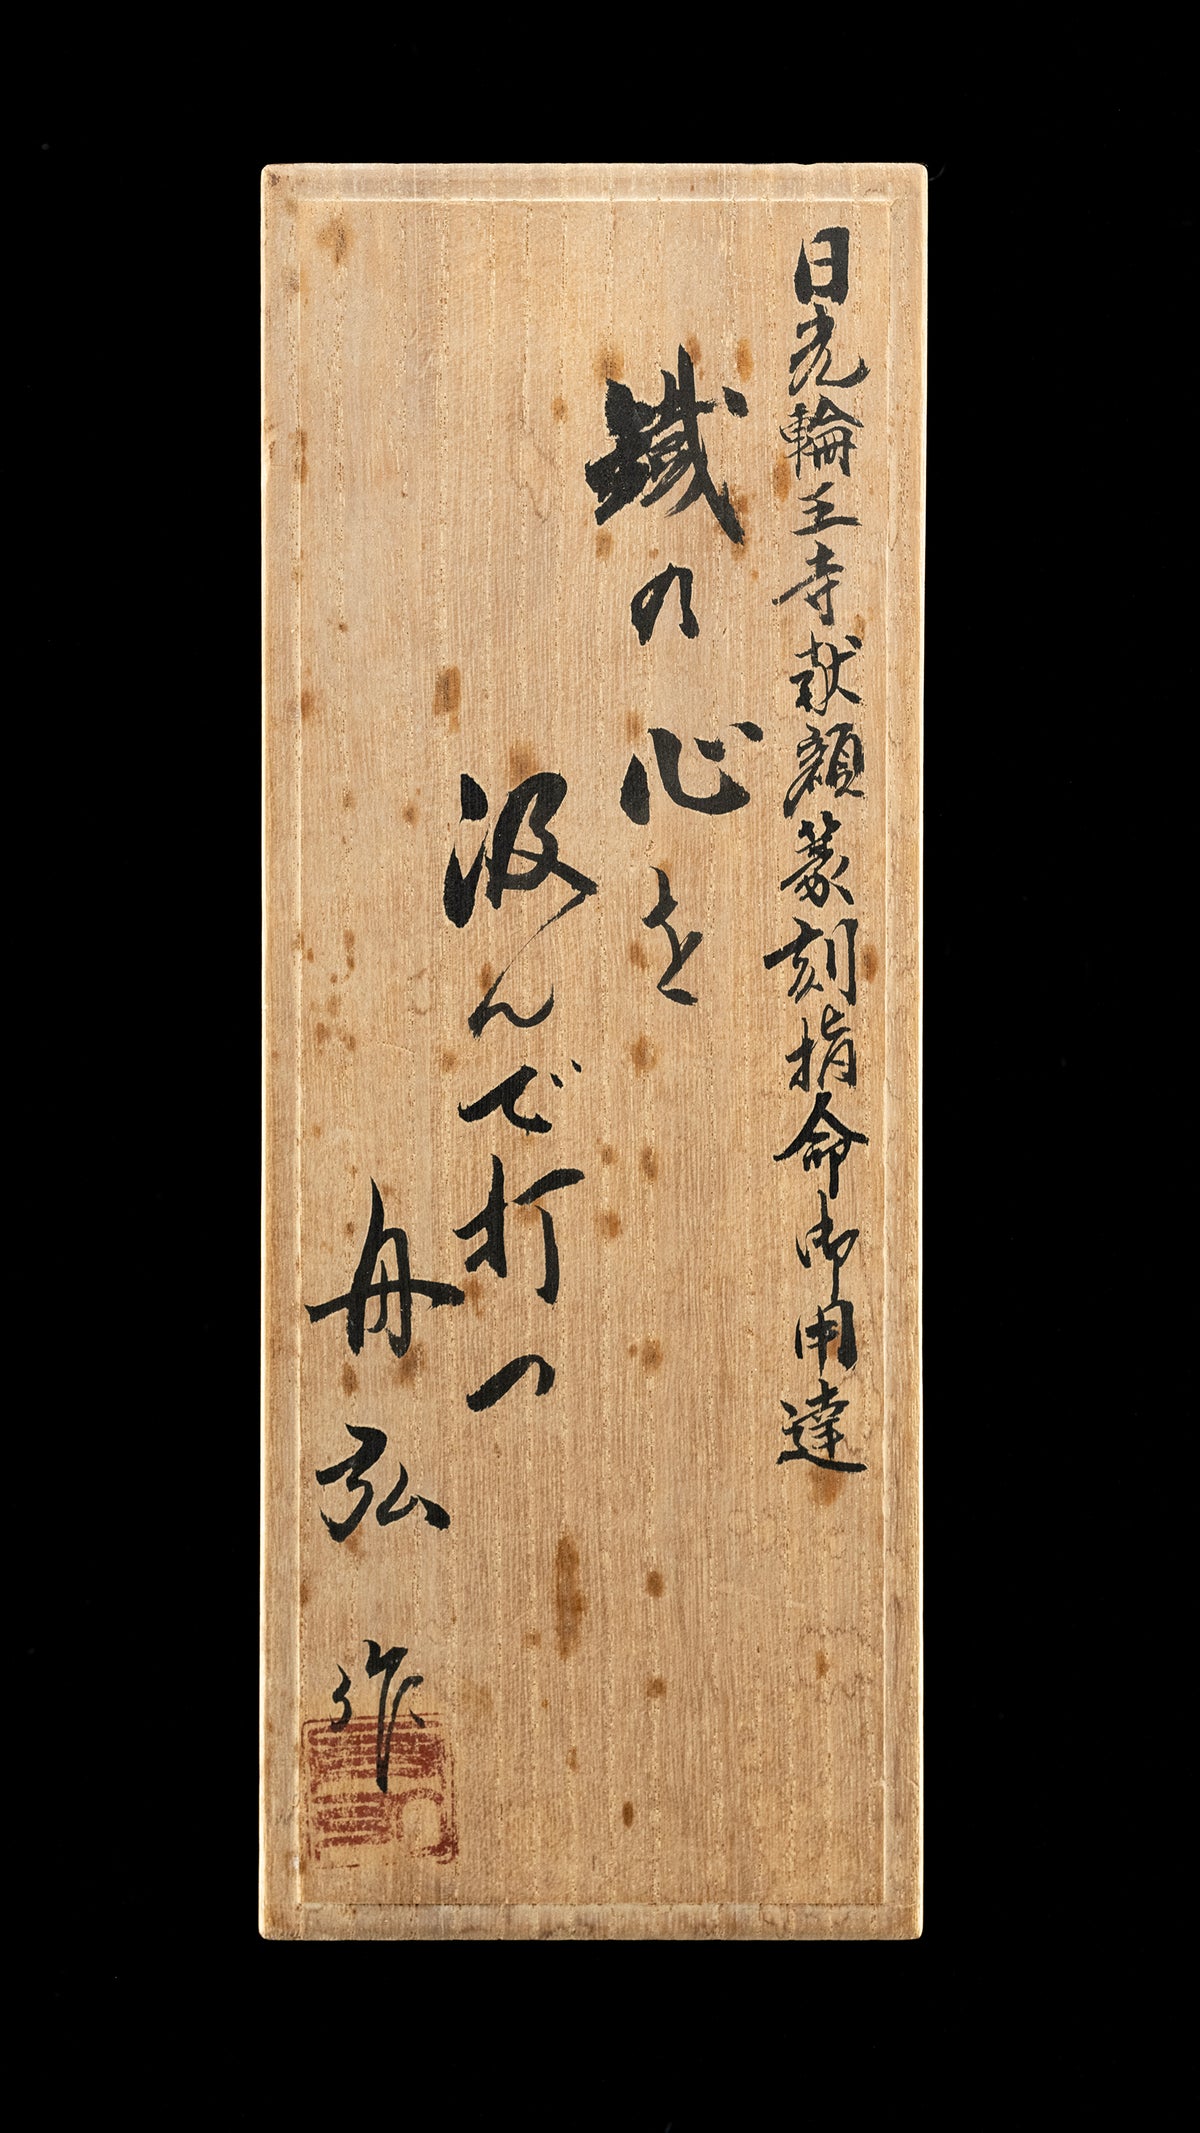 日光輪王寺献額篆刻指命御用達
鐵の心を
汲んで打つ
舟弘
作